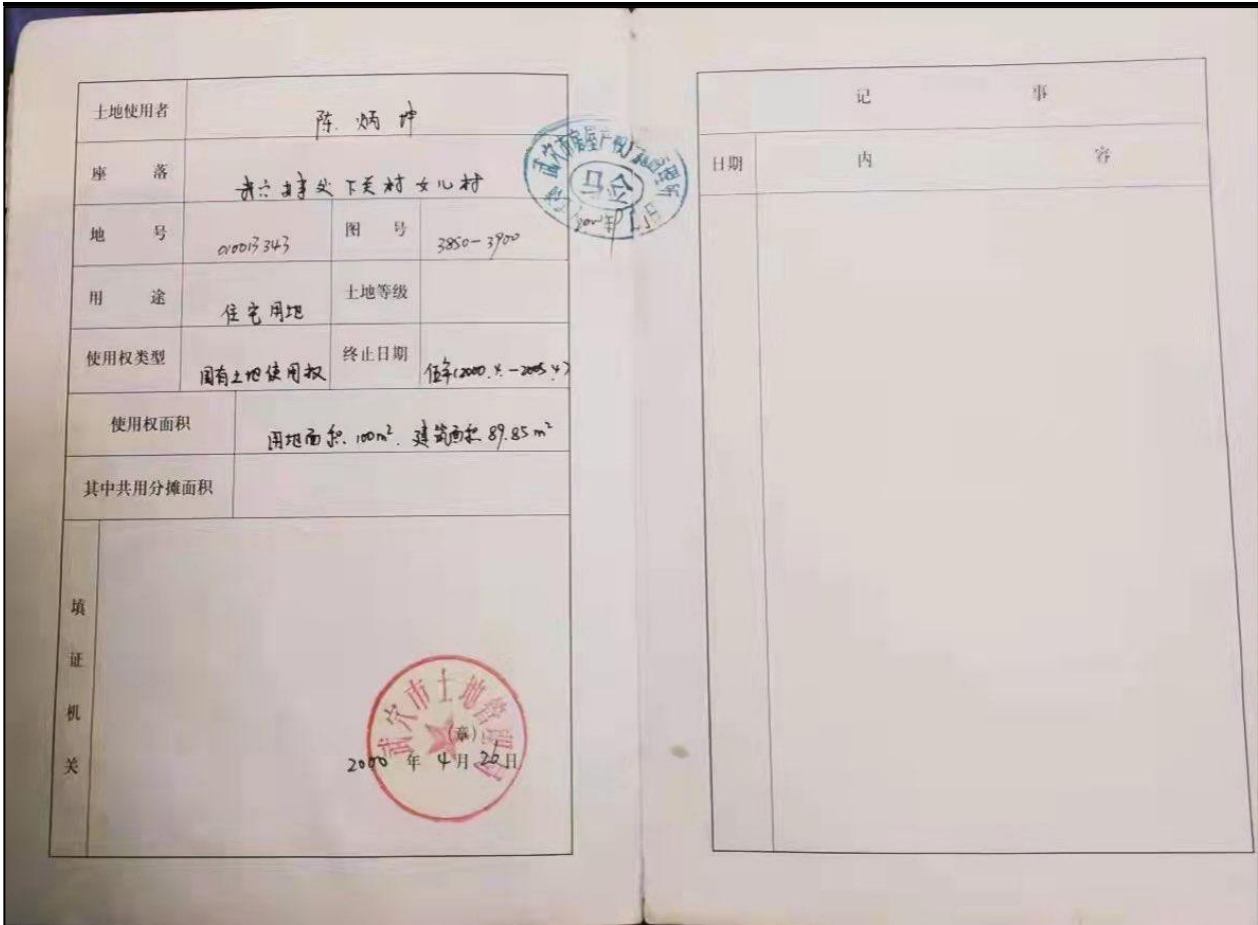 土地使用者 陈炳坤
座落 武穴办事处下关村女儿村
地号 010013343 图号 3850-3900
用途 住宅用地 土地等级
使用权类型 国有土地使用权 终止日期 伍年(2000.4.-2005.4)
使用权面积 用地面积.100m². 建筑面积89.85m²
其中共用分摊面积
填证机关
武穴市土地管理局
(章)
2000年4月26日
武穴市房屋产权产籍管理所
记事
日期 内容